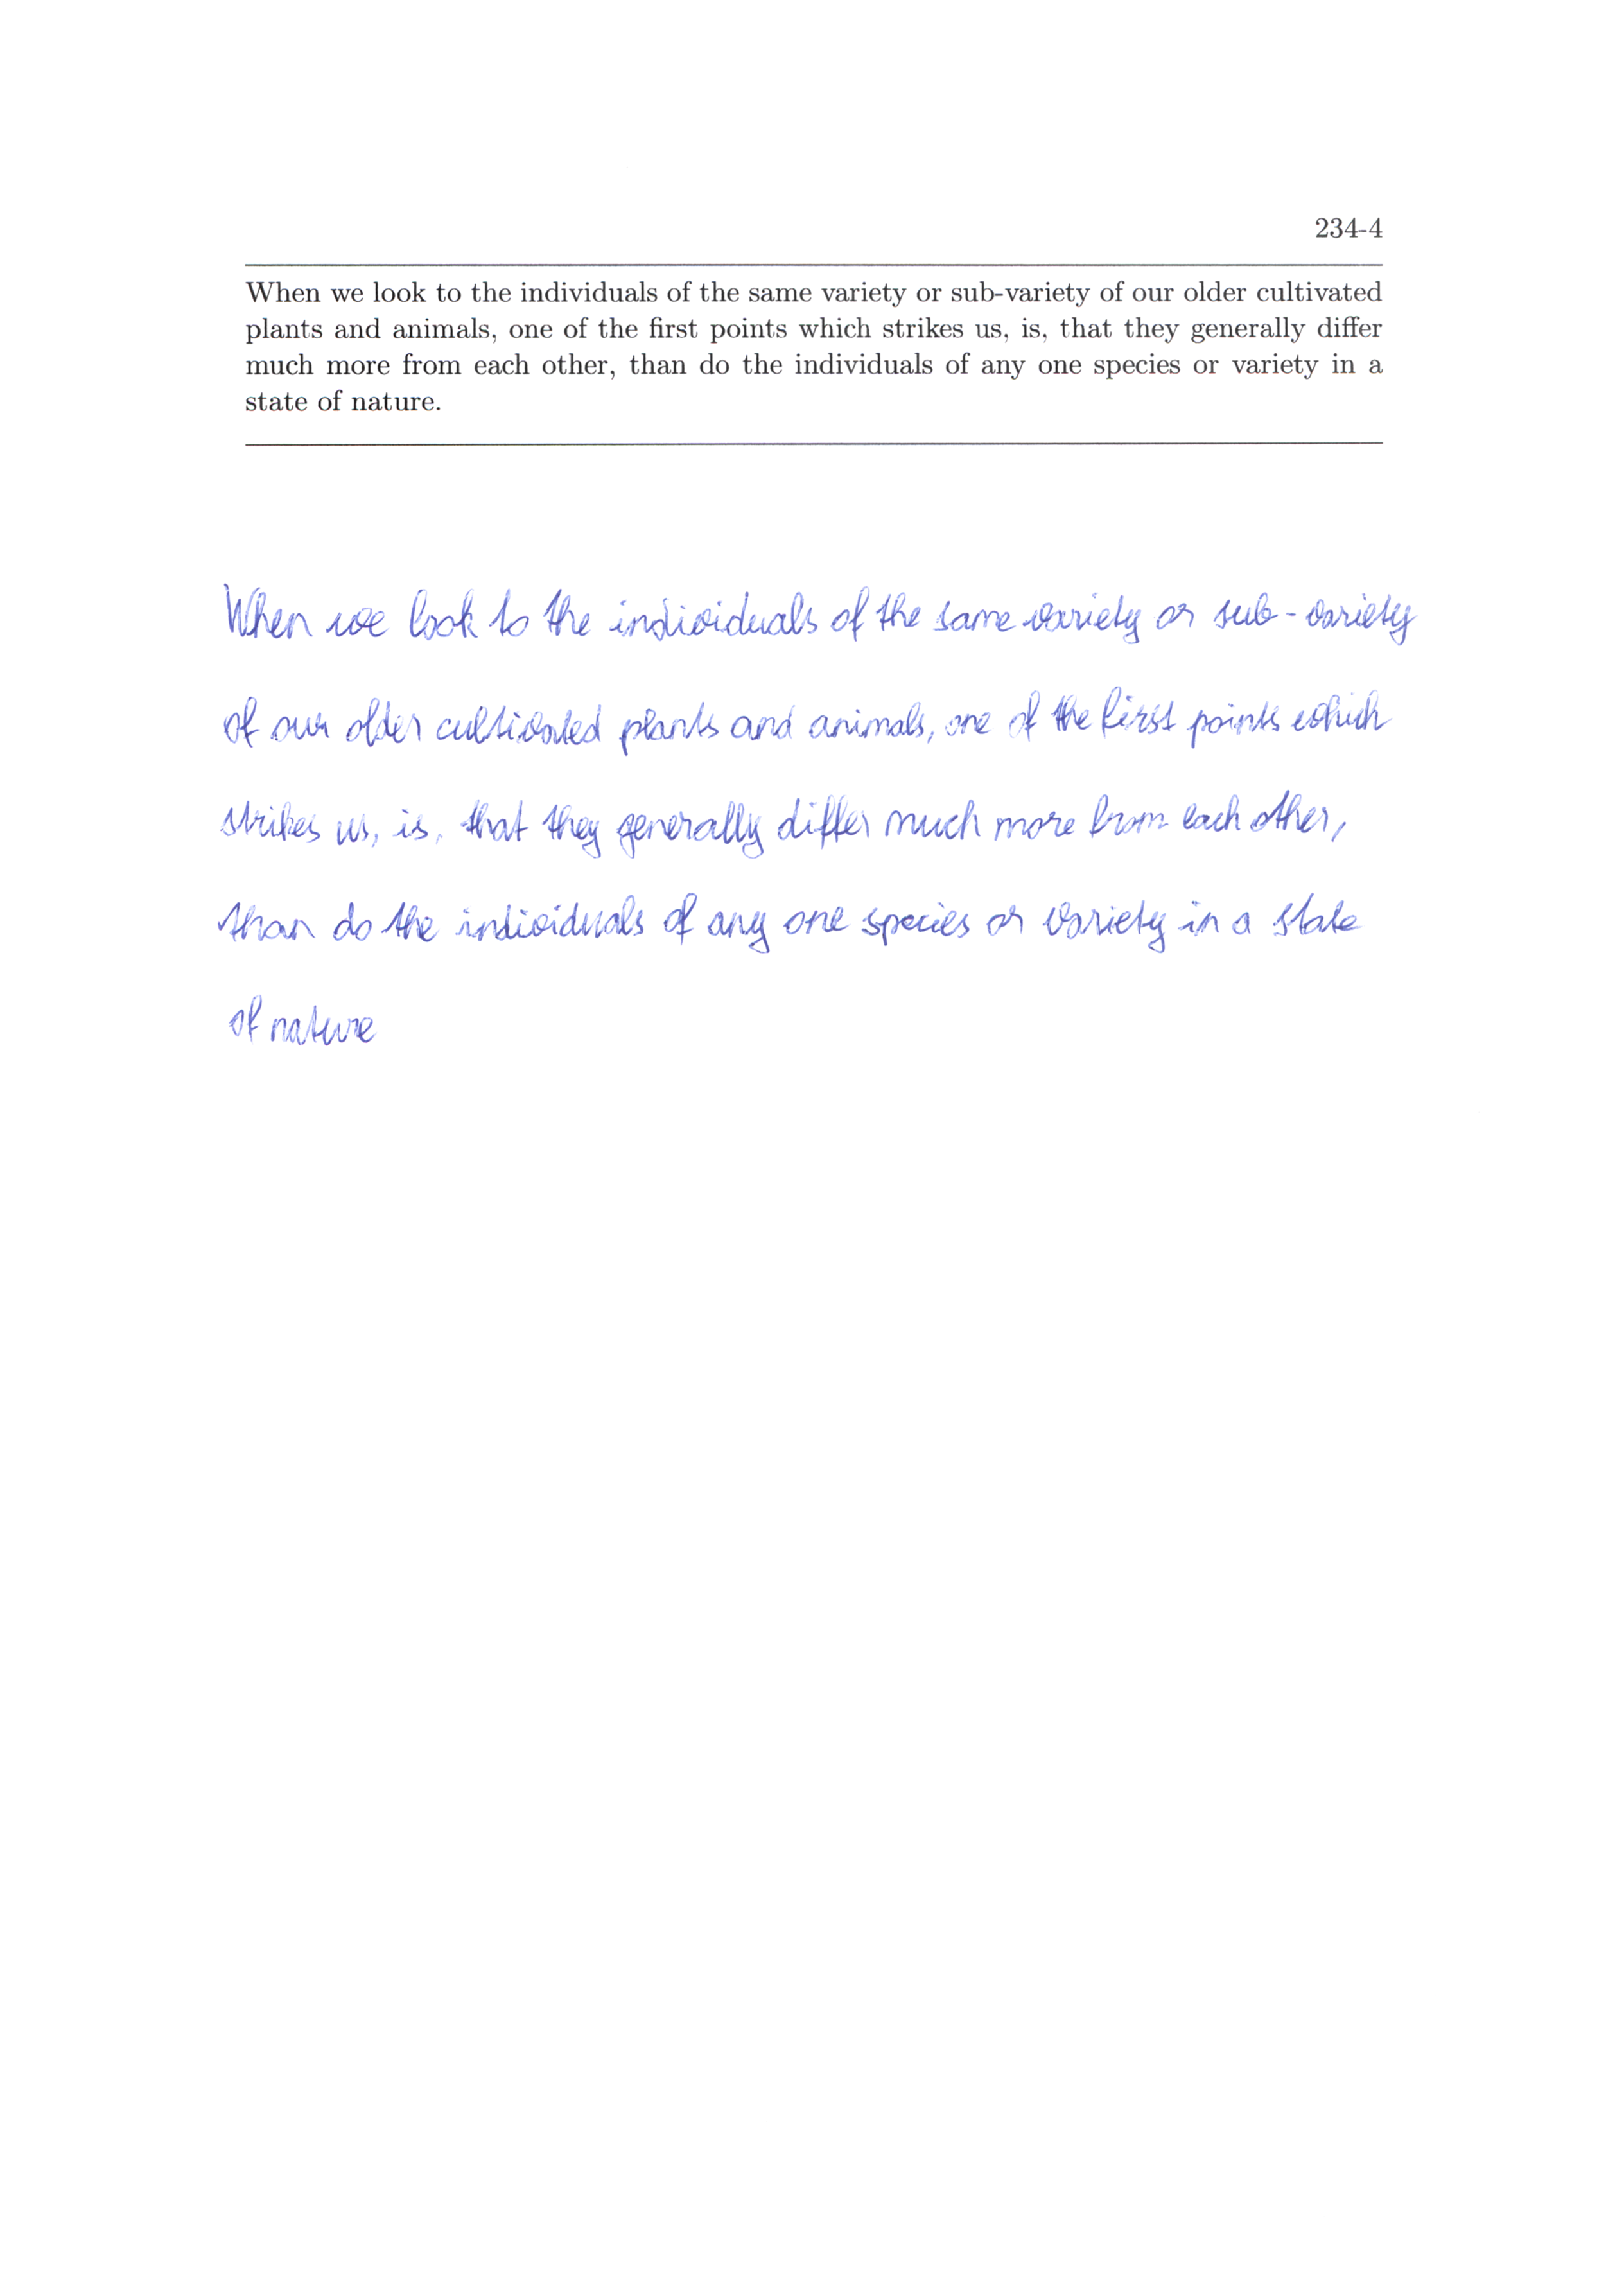 234-4
When we look to the individuals of the same variety or sub-variety of our older cultivated
plants and animals, one of the first points which strikes us, is, that they generally differ
much more from each other, than do the individuals of any one species or variety in a
state of nature.
When we look to the individuals of the same variety or sub-variety
of our older cultivated plants and animals, one of the first points which
strikes us, is, that they generally differ much more from each other,
than do the individuals of any one species or variety in a state
of nature